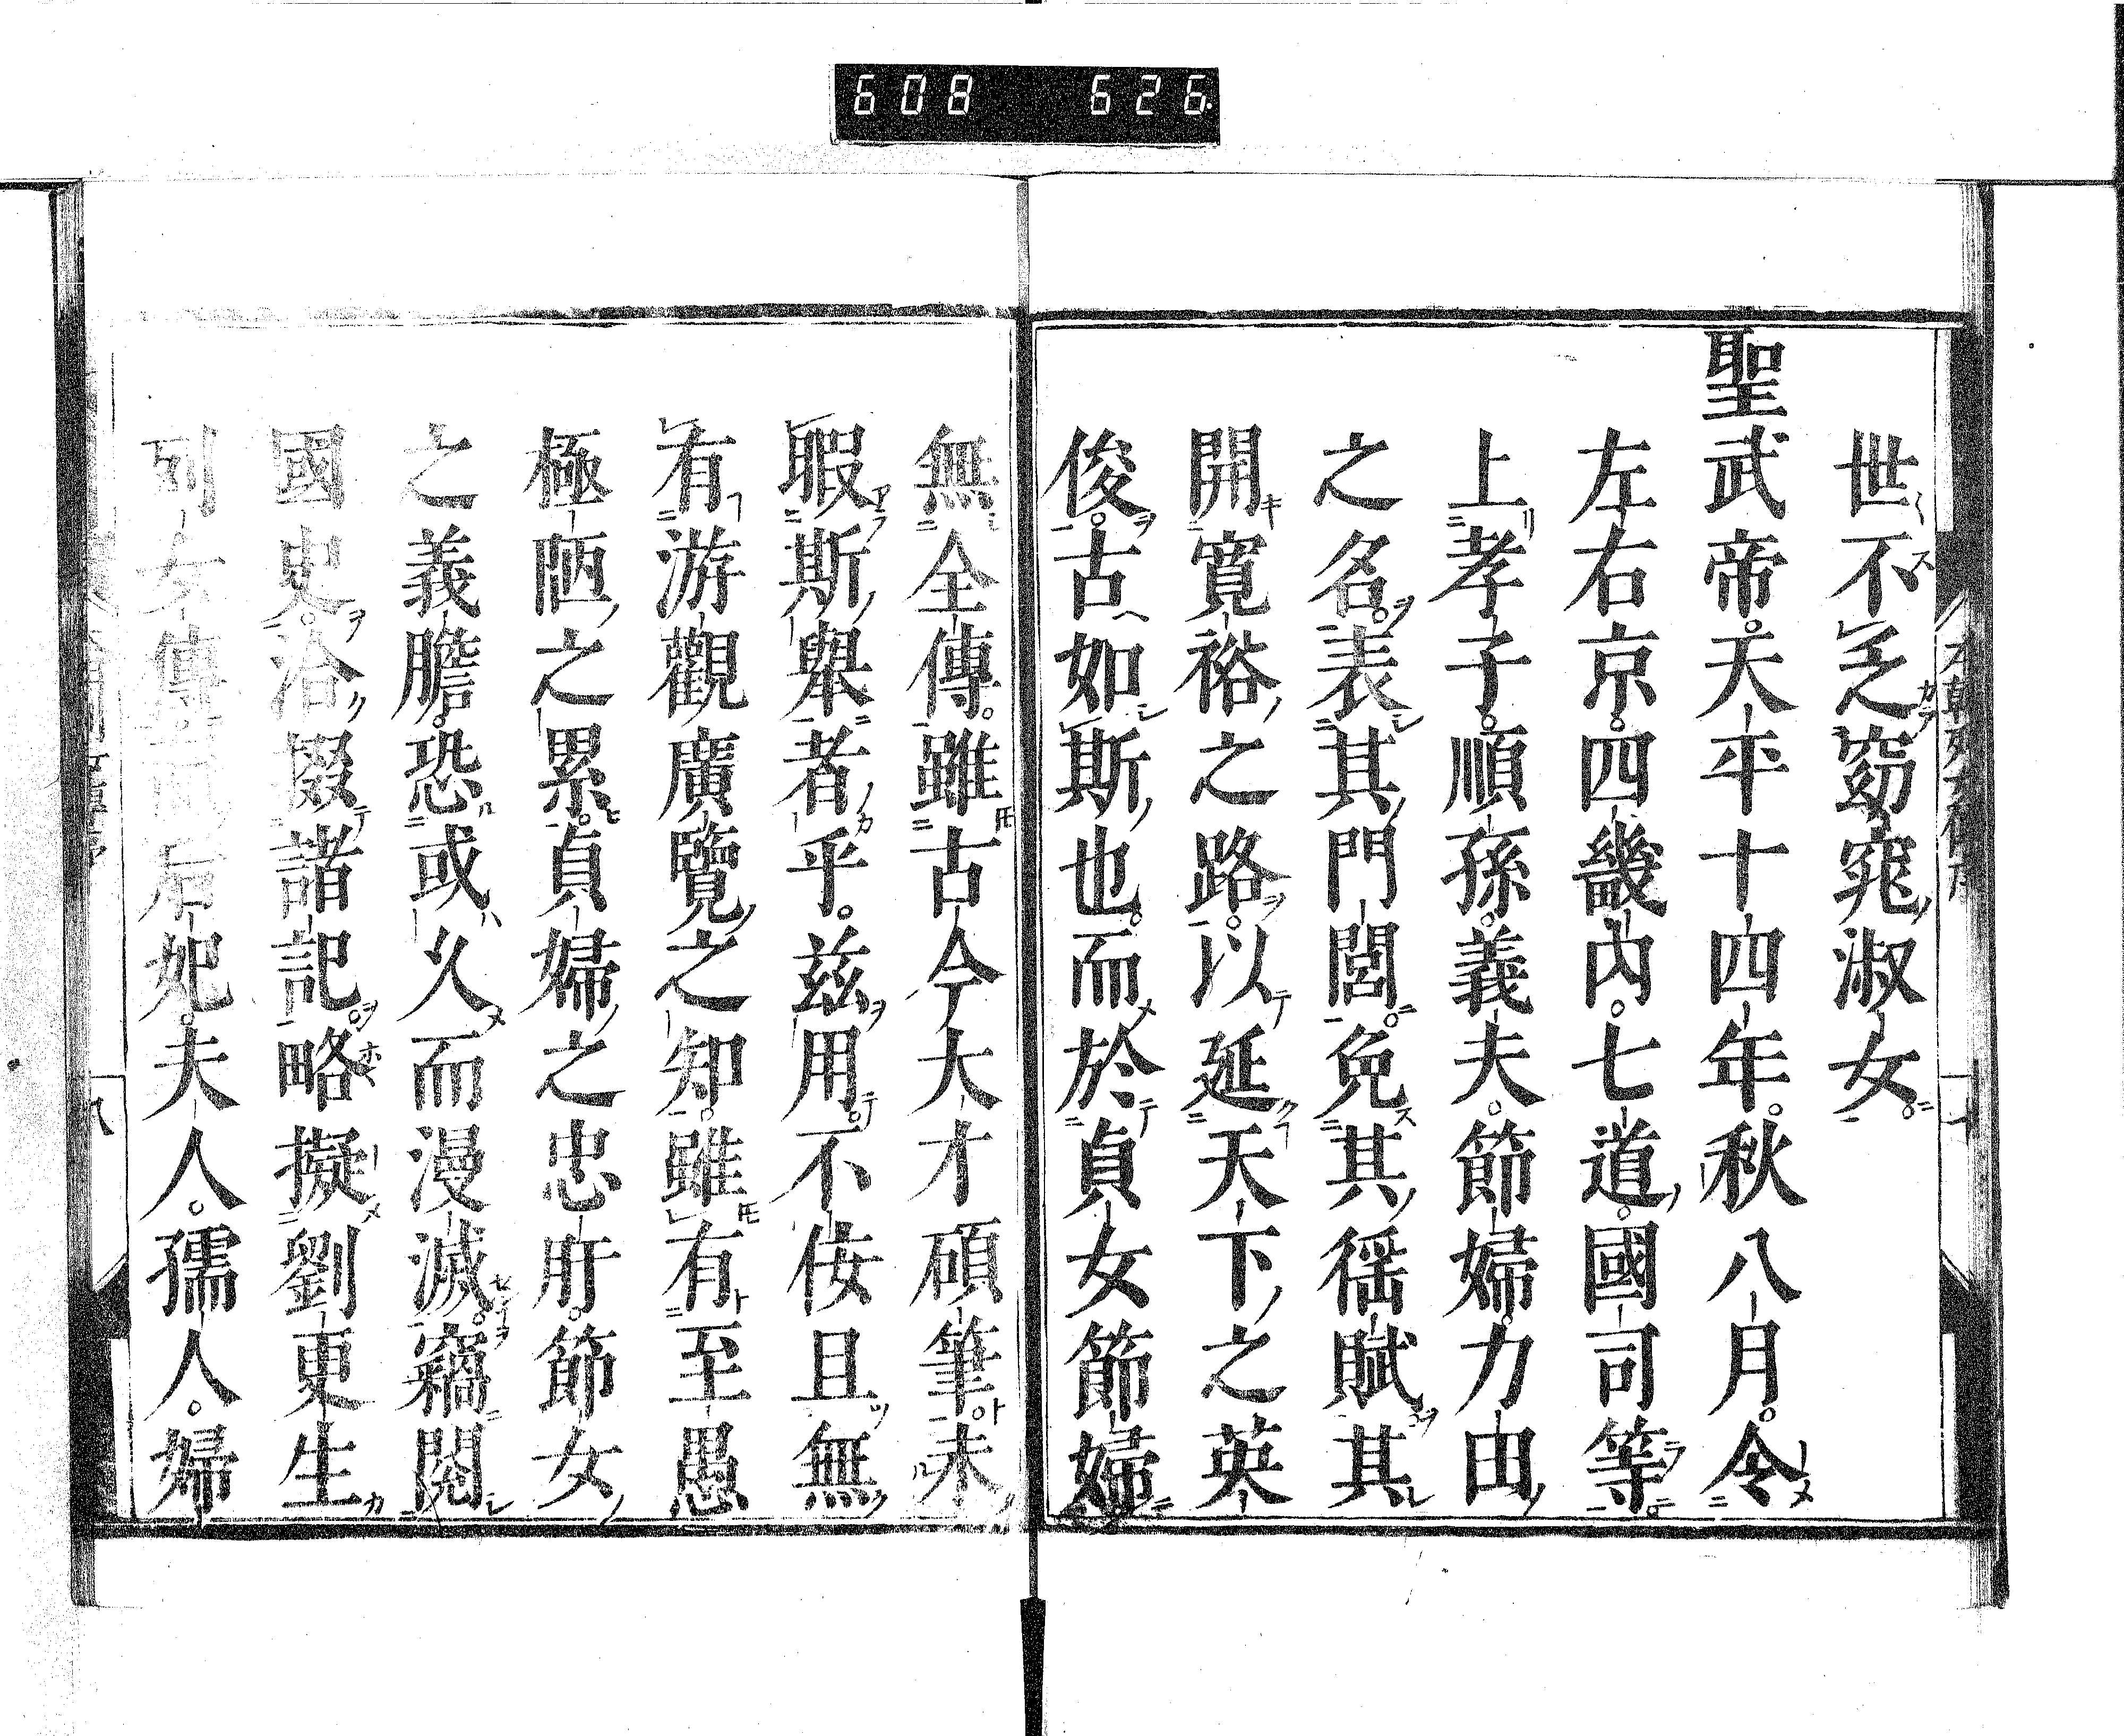 608 626
世不乏窈窕淑女
聖武帝。天平十四年。秋八月。令
左右京。四畿內。七道。國司等
上孝子。順孫。義夫。節婦。力田
之名。表其門閭。免其徭賦。其
開寬裕之路。以延天下之英
俊。古如斯也。而於貞女節婦
無全傳。雖古今大才碩筆。未
暇斯舉者乎。茲用不侫且無
有游觀廣覽之知。雖有至愚
極陋之累。貞婦之忠肝。節女
之義膽。恐或久而漫滅。竊閱
國史。洽掇諸記。略擬劉更生
列女傳。而后妃。夫人。孺人。婦